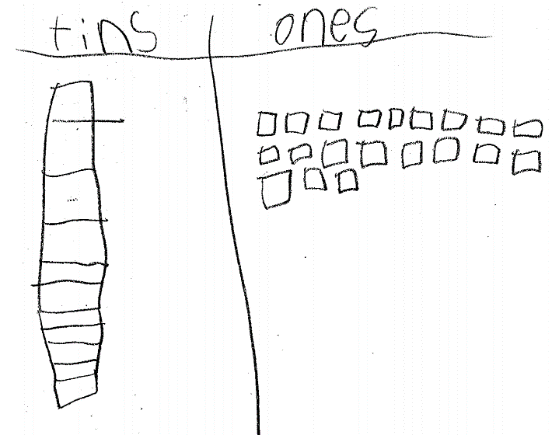 tins ones